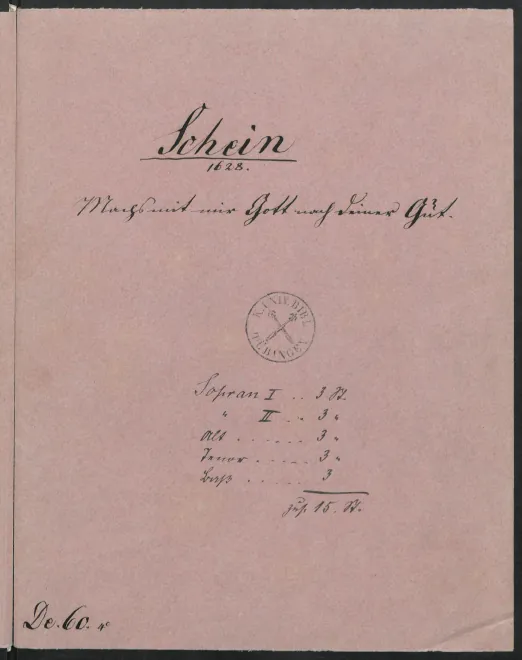 Schein
1628.
Machs mit mir Gott nach deiner Güt.
K. UNIV. BIBL.
TÜBINGEN
Sopran I . . 3 St.
" II . . 3 "
Alt . . . . . . 3 "
Tenor . . . . . 3 "
Baß . . . . . 3
zus. 15. St.
De. 60. 4°